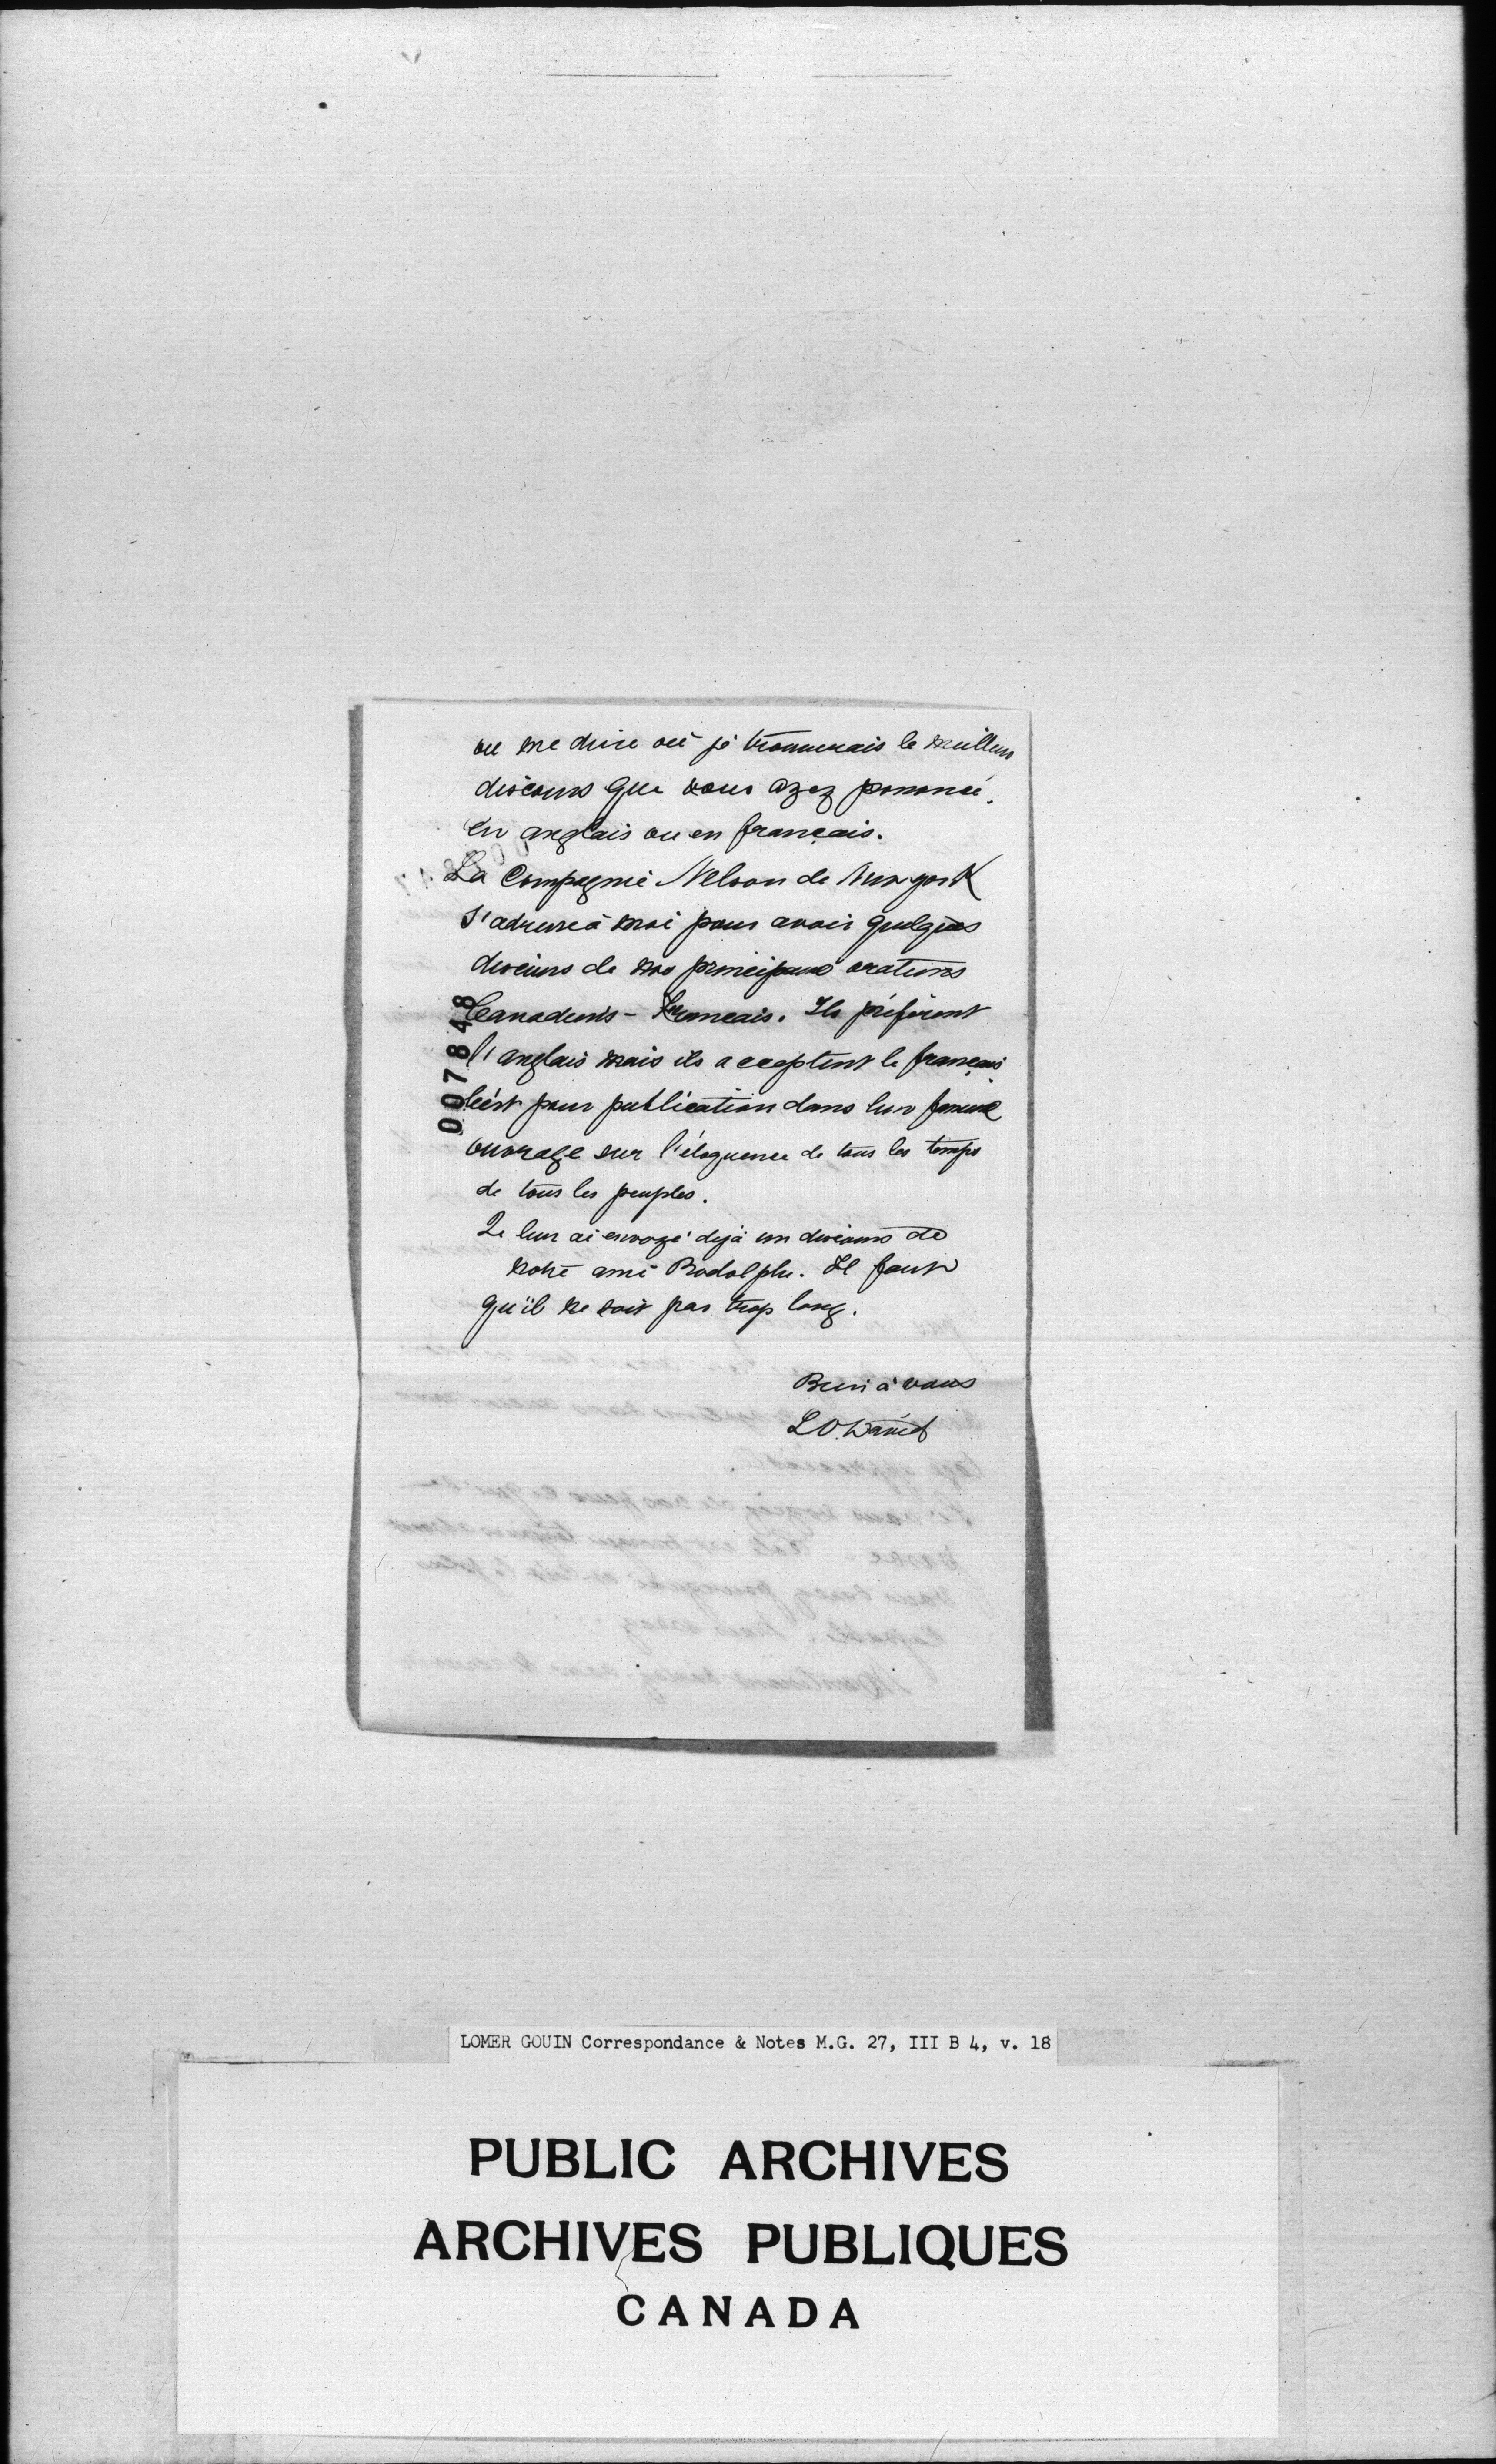 ou me dire où je trouverais le meilleur
discours que vous ayez prononcé,
en anglais ou en français.
La Compagnie Nelson de New york
s'adresse à moi pour avoir quelques
discours de nos principaux orateurs
Canadiens-Français. Ils préfèrent
l'anglais mais ils acceptent le français.
C'est pour publication dans leur fameux
ouvrage sur l'éloquence de tous les temps
de tous les peuples.
Je leur ai envoyé déjà un discours de
notre ami Rodolphe. Il faut
qu'il ne soit pas trop long.
Bien à vous
L O. David
007848
LOMER GOUIN Correspondance & Notes M.G. 27, III B 4, v. 18
PUBLIC ARCHIVES
ARCHIVES PUBLIQUES
CANADA